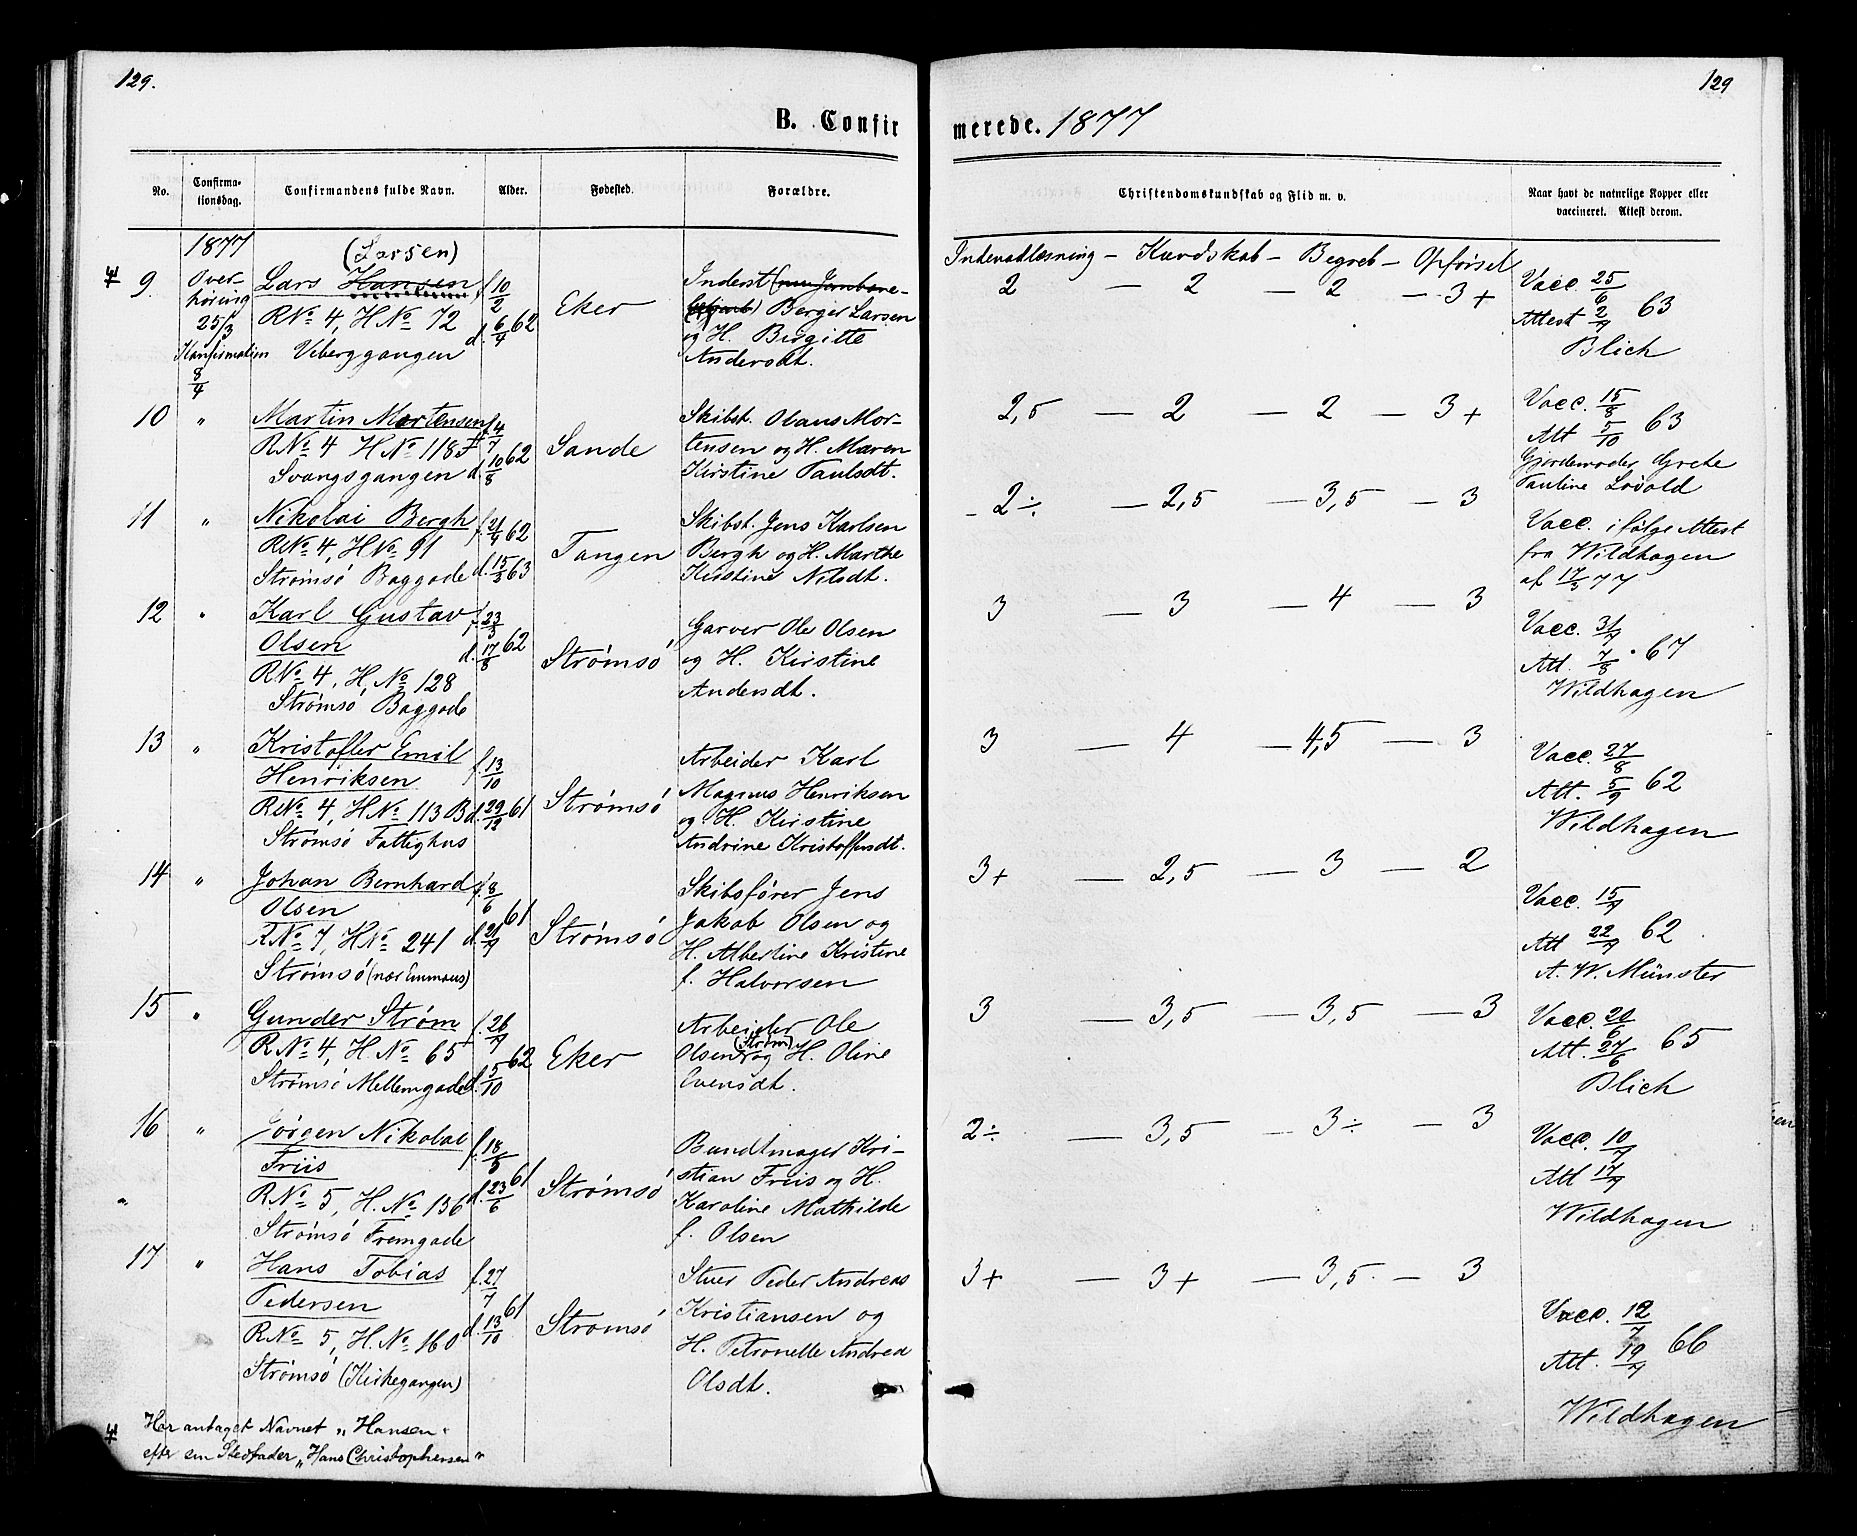 129.
129
B. Confir
merede. 1877
No.
Confirma-
tionsdag.
Confirmandens fulde Navn.
Alder.
Fødested.
Forældre.
Christendomskundskab og Flid m. v.
Naar havt de naturlige Kopper eller
vaccineret. Attest derom.
1877
Indenadlæsning — Kundskab — Begreb — Opførsel
9.
Over-
høring
25/3
Konfirmation
8/4
(Larsen)
Lars Hansen
R.No 4, H.No 72
Viberggangen
f. 10/2
d. 6/4 62
Eker
Inderst
Berger Larsen
og H. Birgitte
Andersdt.
2 — 2 — 2 — 3+
Vacc. 25/6
Attest 2/7 63
Blich
10
"
Martin Mortensen
R.No 4 H.No 118 F
Svangsgangen
f. 4/7
d. 10/8 62
Sande
Skibst. Olaus Mor-
tensen og H. Maren
Kirstine Paulsdt.
2,5 — 2 — 2 — 3+
Vacc. 15/8
Att 5/10 63
Gjordemoder Grete
Pauline Lövold
11
"
Nikolai Bergh
R.No 4, H.No 91
Strømsö Baggade
f. 21/4 62
d. 15/3 63
Tangen
Skibst. Jens Karlsen
Bergh og H. Marthe
Kirstine Nilsdt.
2÷ — 2,5 — 3,5 — 3
Vacc. ifølge Attest
fra Wildhagen
af 17/3 77
12
"
Karl Gustav
Olsen
R.No 4, H.No 128
Strømsö Baggade
f. 23/3
d. 17/8 62
Strømsö
Garver Ole Olsen
og H. Kirstine
Andersdt.
3 — 3 — 4 — 3
Vacc. 31/7
Att. 7/8 67
Wildhagen
13
"
Kristoffer Emil
Henriksen
R.No 4, H.No 113 B
Strømsö Fattighus
f. 13/10
d. 29/12 61
Strømsö
Arbeider Karl
Magnus Henriksen
og H. Kirstine
Andrine Kristoffersdt.
3 — 4 — 4,5 — 3
Vacc. 27/8
Att. 5/9 62
Wildhagen
14
"
Johan Bernhard
Olsen
R.No 7, H.No 241
Strømsö (nær Emmaus)
f. 8/6
d. 21/7 61
Strømsö
Skibsfører Jens
Jakob Olsen og
H. Albertine Kristine
f. Halvorsen
3+ — 2,5 — 3 — 2
Vacc. 15/7
Att 22/7 62
A. W. Münster
15
"
Gunder Strøm
R.No 4, H.No 65
Strømsö Mellemgade
f. 26/7
d. 5/10 62
Eker
Arbeider Ole
Olsen (Strøm) og H. Oline
Evensdt.
3 — 3,5 — 3,5 — 3
Vacc. 20/6
Att. 27/6 65
Blich
16
"
Jörgen Nikolai
Friis
R.No 5, H.No 136
Strømsö Fremgade
f. 18/5
d. 23/6 61
Strømsö
Bundtmager Kri-
stian Friis og H.
Karoline Mathilde
f. Olsen
2÷ — 3,5 — 3÷ — 3
Vacc. 10/7
Att 17/7
Wildhagen
17
"
Hans Tobias
Pedersen
R.No 5, H.No 160
Strømsö (Kirkegangen)
f. 27/7
d. 13/10 61
Strømsö
Stuer Peder Andreas
Kristiansen og
H. Petronelle Andrea
Olsdt.
3+ — 3+ — 3,5 — 3
Vacc. 12/7
Att. 19/7 66
Wildhagen
Har antaget Navnet „Hansen"
efter sin Stedfader „Hans Christophersen"